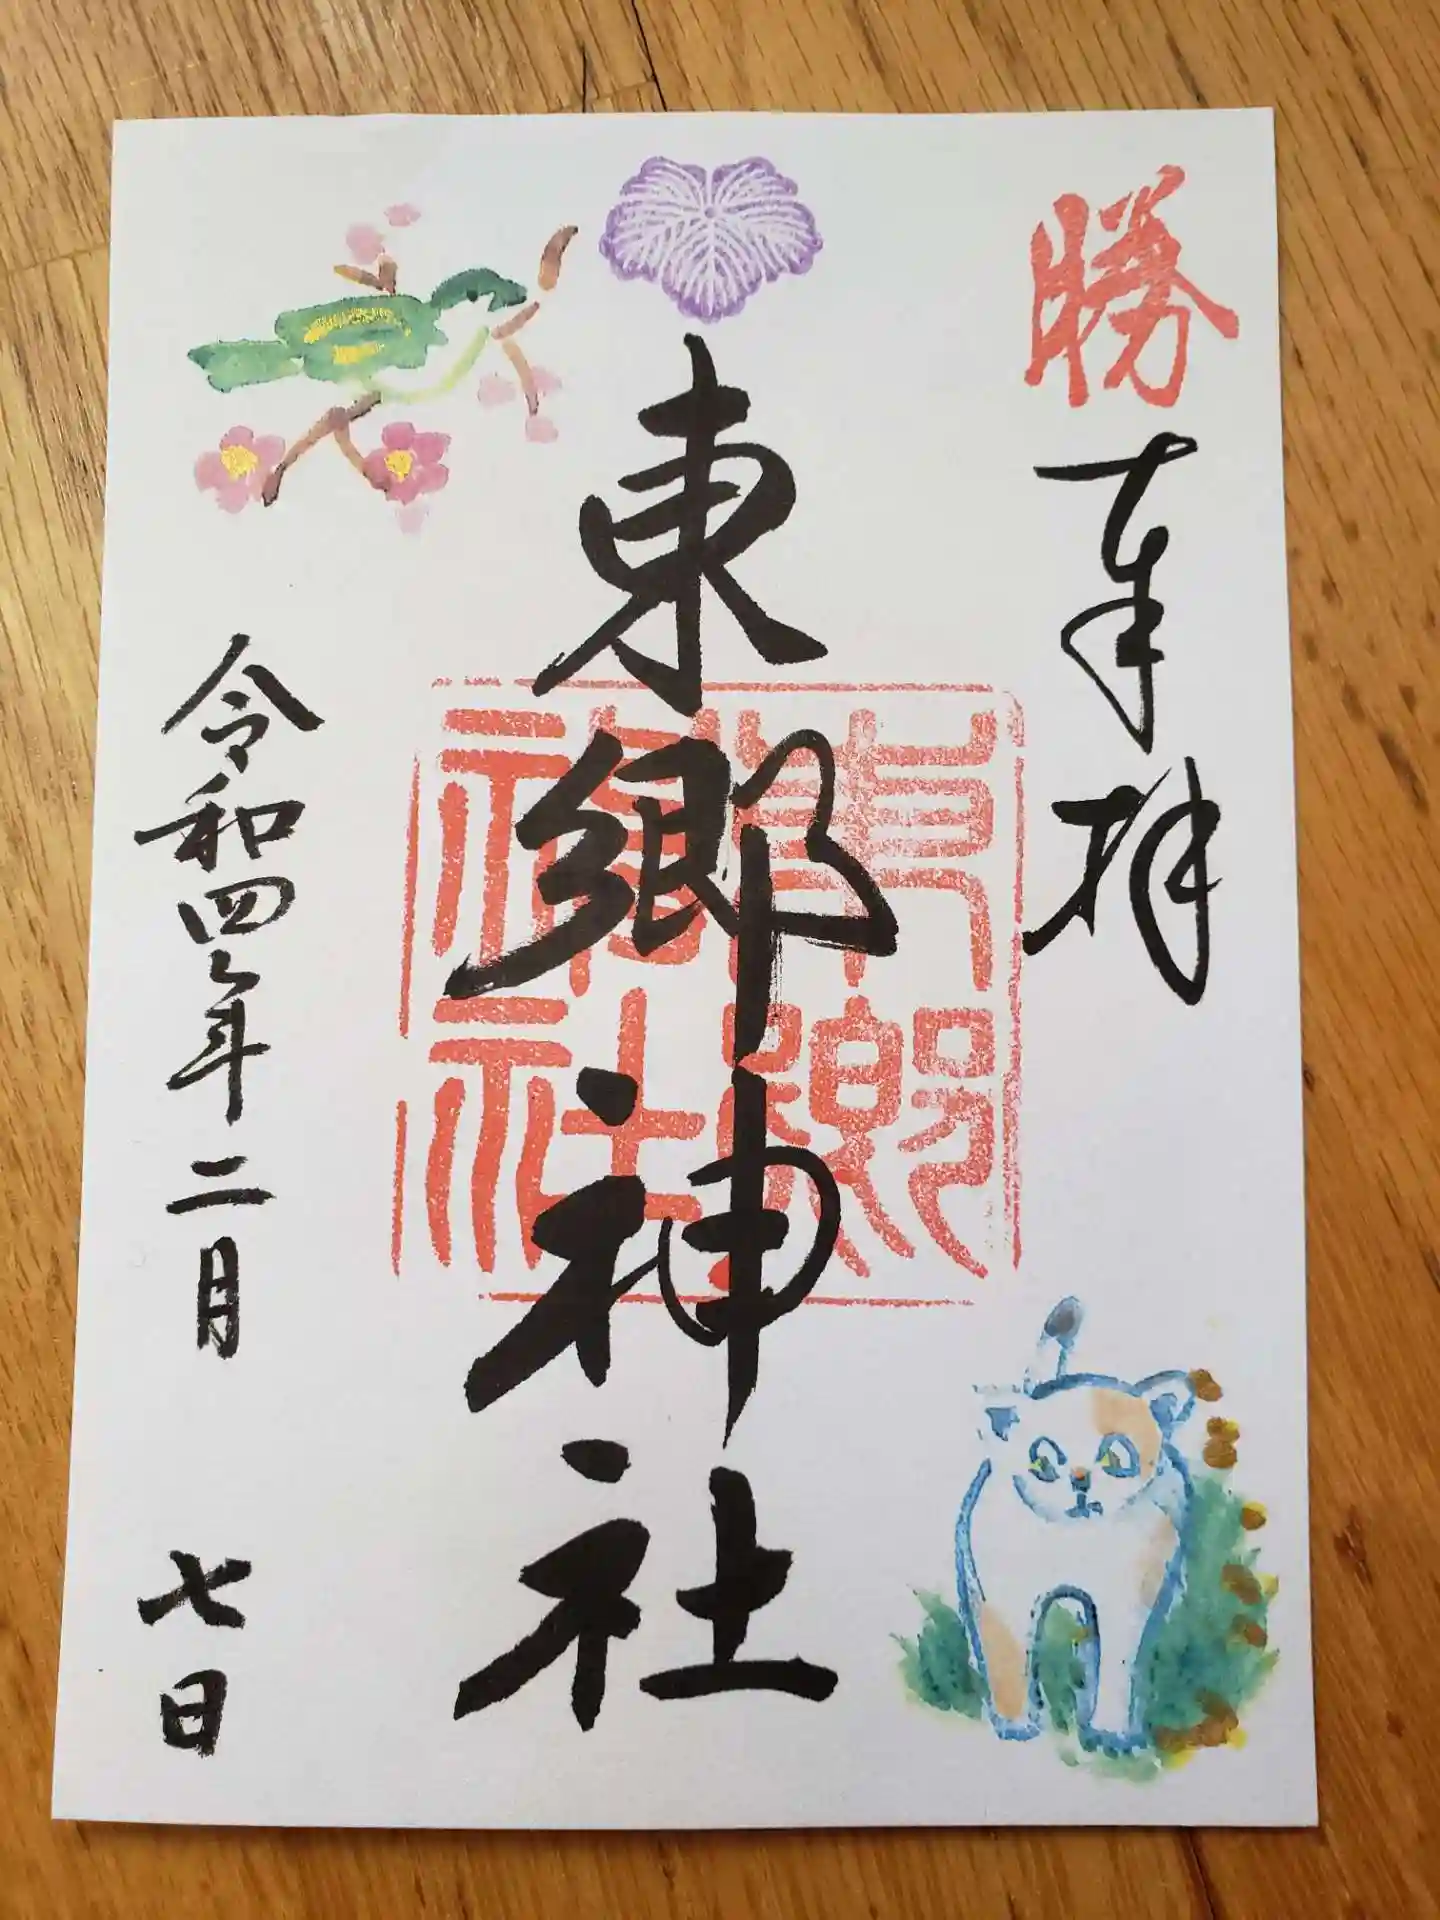 勝
奉拝
東郷神社
東郷
神社
令和四年二月七日